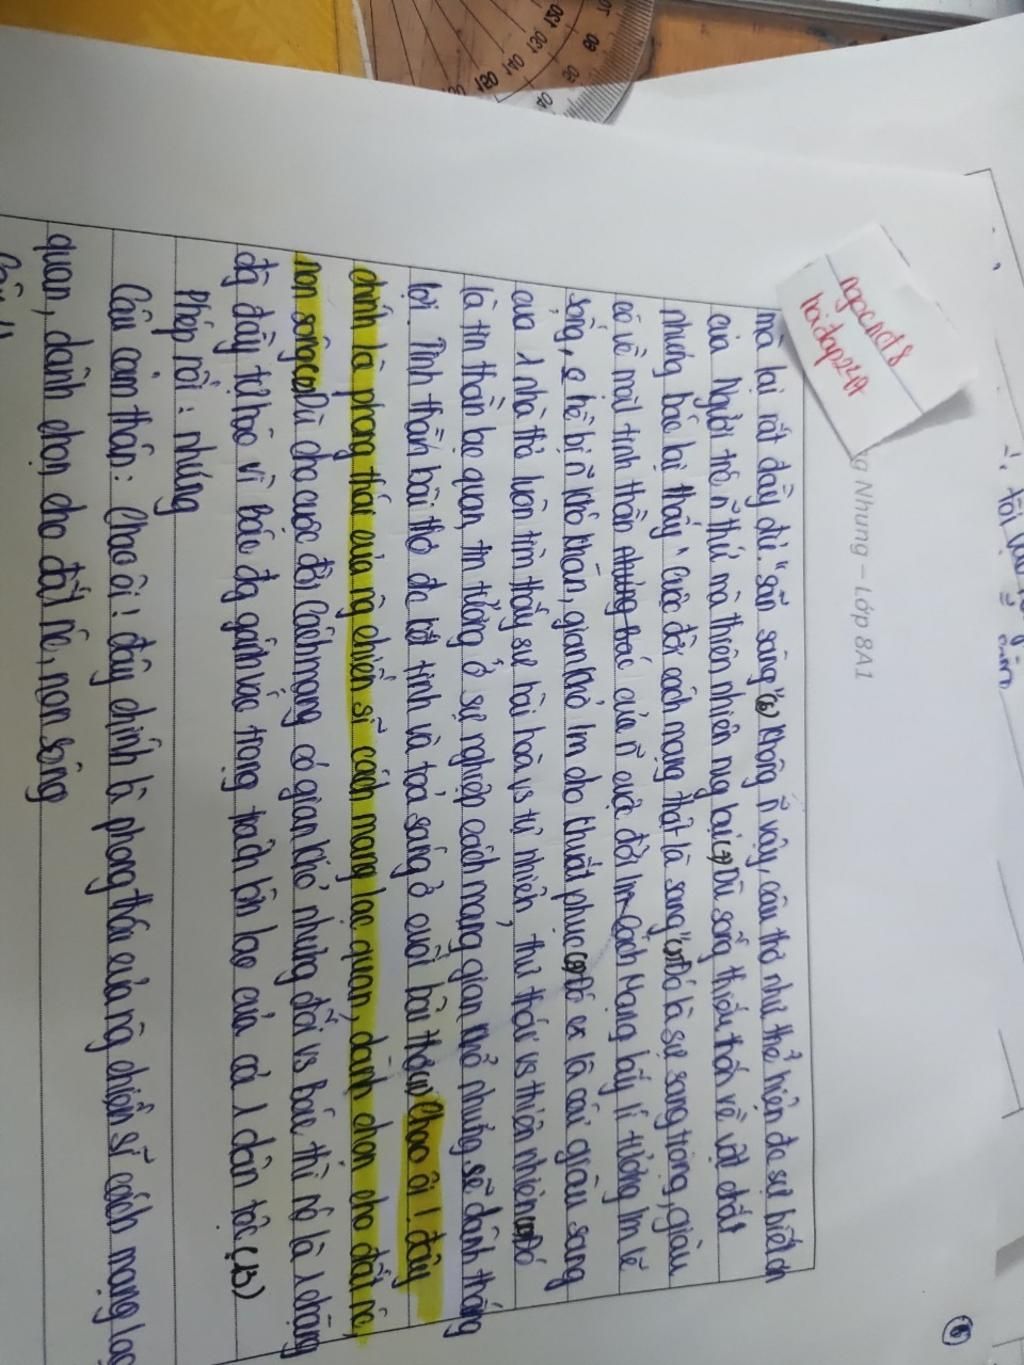 ngocnd8
hoidap247
g Nhung – Lớp 8A1
6
mà lại rất đầy đủ "sẵn sàng" (6) Không ~ vậy, câu thơ như thể hiện đc sự biết ơn
của Người trc ~ thứ mà thiên nhiên mg lại (7) Dù sống thiếu thốn về vật chất
nhưng bác lại thấy "cuộc đời cách mạng thật là sang" (8) Đó là sự sang trọng, giàu
có về mặt tinh thần của ~ cuộc đời lm Cách Mạng lấy lí tưởng lm lẽ
sống, k hề bị ~ khó khăn, gian khổ lm cho khuất phục (9) Đó cx là cái giàu sang
của 1 nhà thơ luôn tìm thấy sự hài hoà vs tự nhiên, thư thái vs thiên nhiên (10) Đó
là tin thần lạc quan, tin tưởng ở sự nghiệp cách mạng gian khổ nhưng sẽ dành thắng
lợi. Tinh thần bài thơ đc kết tinh và toả sáng ở cuối bài thơ (11) Chao ôi! đây
chính là phong thái của ng chiến sĩ cách mạng lạc quan, dành chọn cho đất nc,
non sông (12) Dù cho cuộc đời Cách mạng có gian khổ nhưng đối vs Bác thì nó là 1 chặng
đg đầy tự hào vì bác đg gánh vác trọng trách lớn lao của cả 1 dân tộc (13)
Phép nối: nhưng
Câu cảm thán: Chao ôi! đây chính là phong thái của ng chiến sĩ cách mạng lạc
quan, dành chọn cho đất nc, non sông